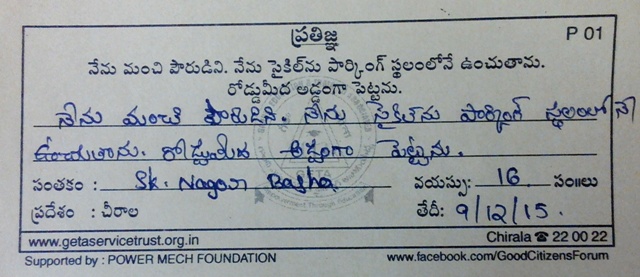 ప్రతిజ్ఞ
P 01
నేను మంచి పౌరుడిని. నేను సైకిల్‌ను పార్కింగ్ స్థలంలోనే ఉంచుతాను.
రోడ్డుమీద అడ్డంగా పెట్టను.
నేను మంచి పౌరుడిని. నేను సైకిల్‌ను పార్కింగ్ స్థలంలో నే
ఉంచుతాను. రోడ్డుమీద అడ్డంగా పెట్టను.
సంతకం : Sk. Nagoor Basha వయస్సు: 16 సం॥లు
ప్రదేశం : చీరాల తేదీ: 9/12/15.
www.getaservicetrust.org.in Chirala ☎ 22 00 22
Supported by : POWER MECH FOUNDATION www.facebook.com/GoodCitizensForum